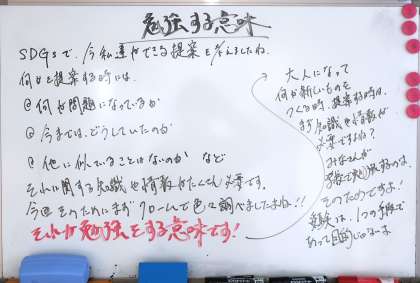 勉強する意味
SDGsで、今私達ができる提案を考えましたね。
何かを提案する時には、
@何が問題になっているか
@今までは、どうしていたのか
@他に似ていることはないのか など
それに関する知識や情報がたくさん必要です。
今回そのためにまずクロームで色々調べましたよね!!
それが勉強をする意味です!
大人になって
何か新しいものを
つくる時、提案する時は、
まず知識や情報が
必要ですよね?
みなさんが
学校で勉強するのは、
そのためですよ!
受験は、1つの手段で
あって目的じゃないよ